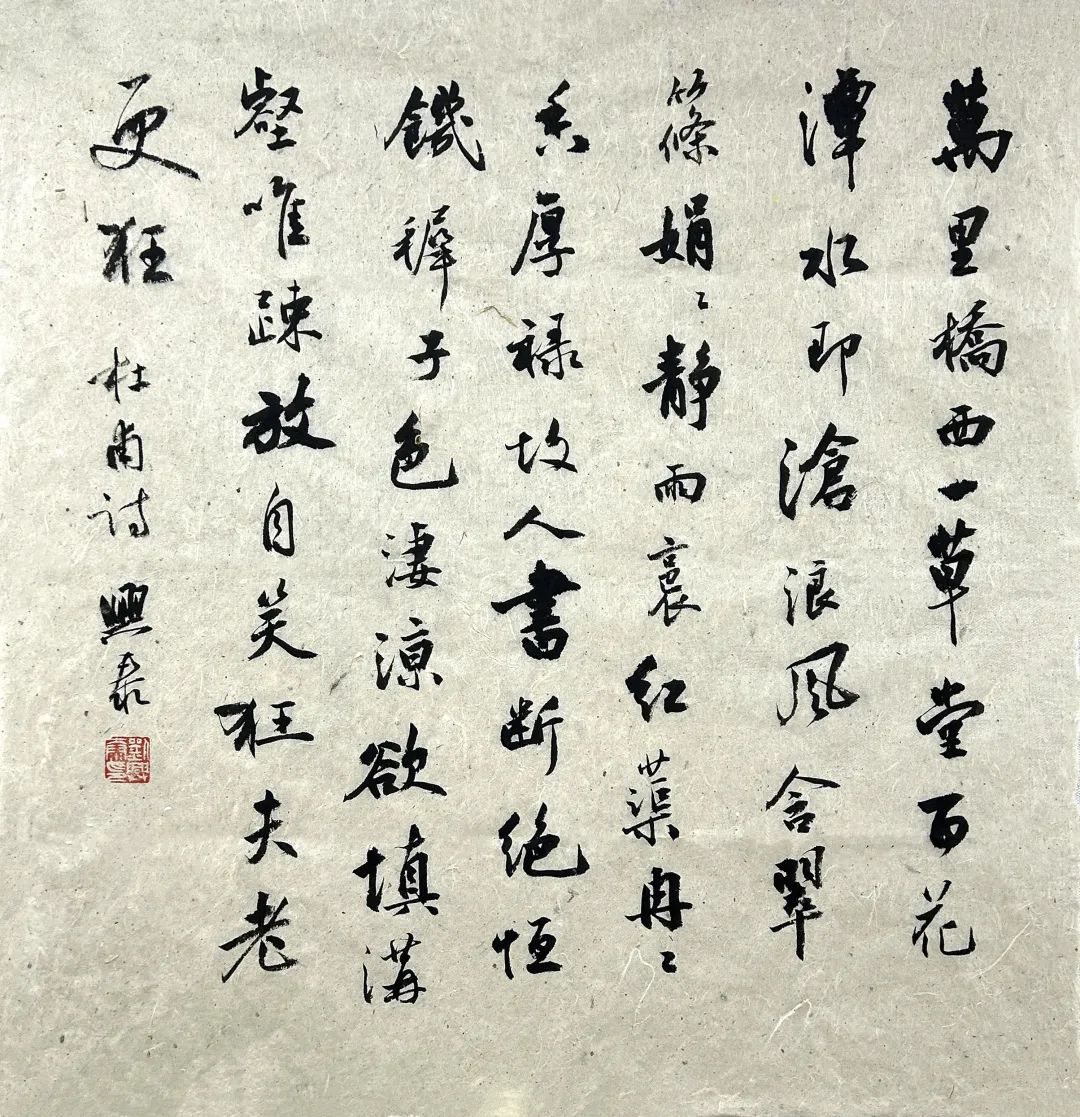 萬里橋西一草堂百花
潭水即滄浪風含翠
篠娟〻静雨裛紅蕖冉〻
香厚禄故人書斷絶恒
饑稺子色淒涼欲填溝
壑唯疎放自笑狂夫老
更狂 杜甫詩 興泰